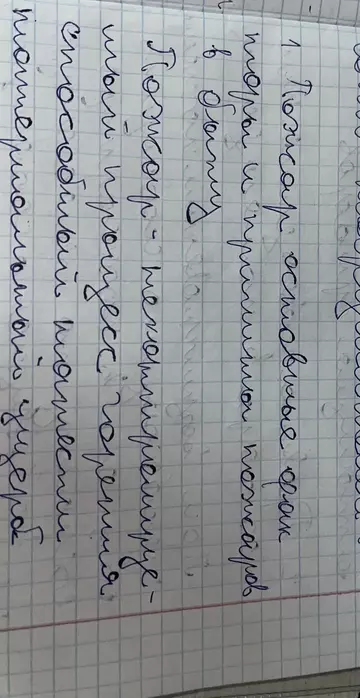 1. Пожар основные фак
торы и причины пожаров
в быту
Пожар - неконтролируе-
мый процесс горения
способный нанести
материальный ущерб